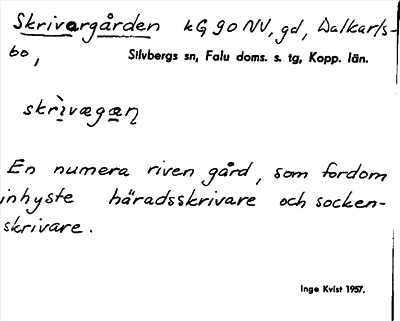 Skrivargården kG 90 NV, gd, Dalkarls-
bo, Silvbergs sn, Falu doms. s. tg, Kopp. län.
skrìvægan̥
En numera riven gård, som fordom
inhyste häradsskrivare och socken-
skrivare.
Inge Kvist 1957.